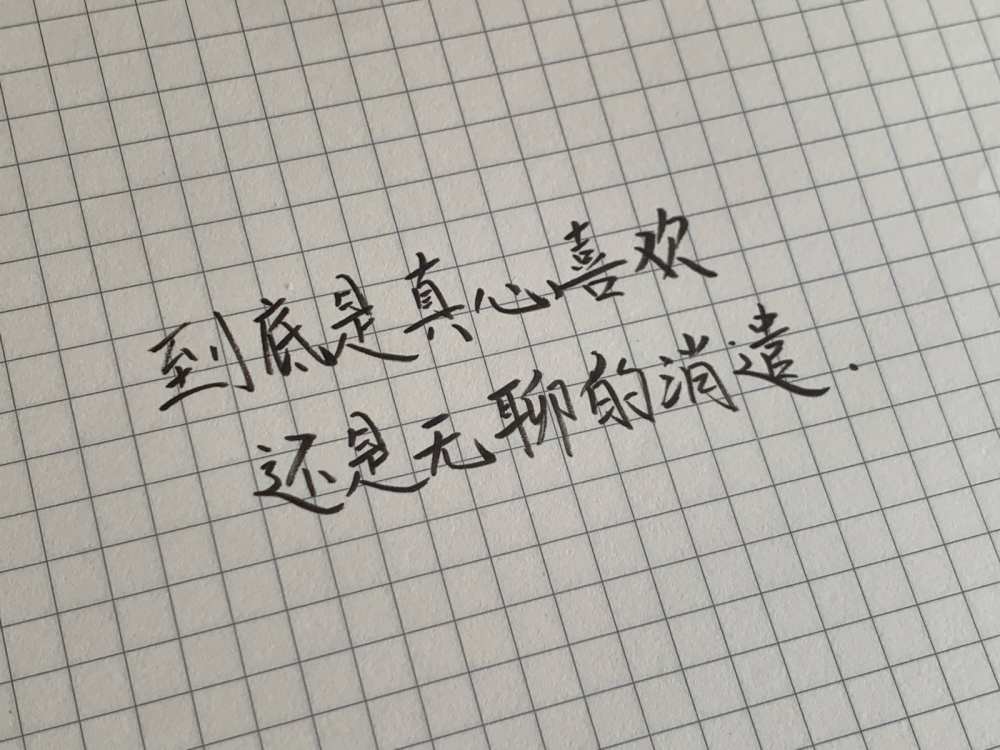 到底是真心喜欢
还是无聊的消遣.